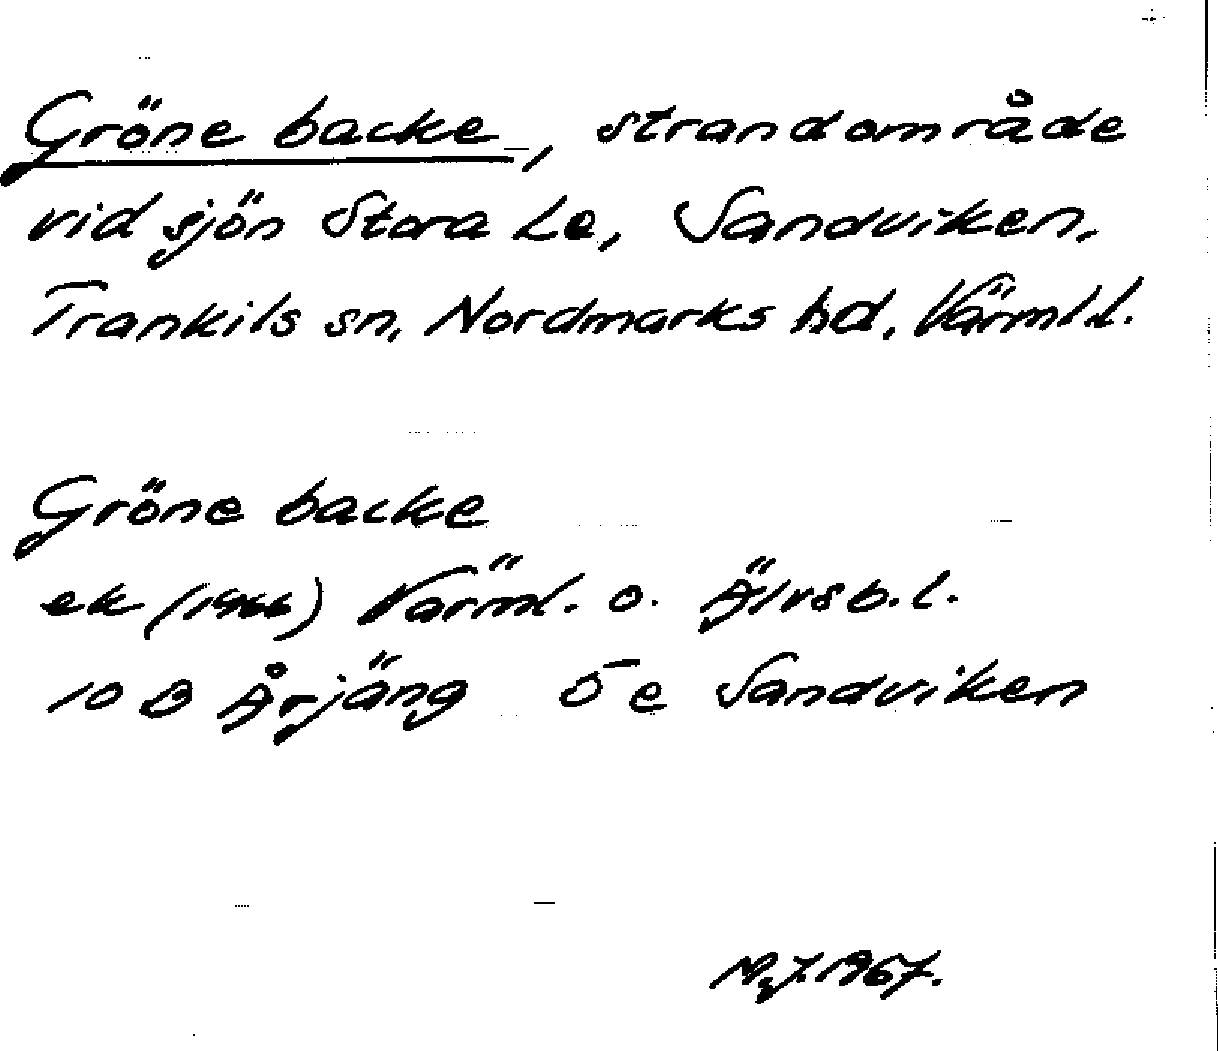 Gröne backe, strandområde
vid sjön Stora Le, Sandviken,
Trankils sn, Nordmarks hd, Värml.l.
Gröne backe
ek (1966) Värml. o. Älvsb.l.
10 B Årjäng 5 e Sandviken
1967.